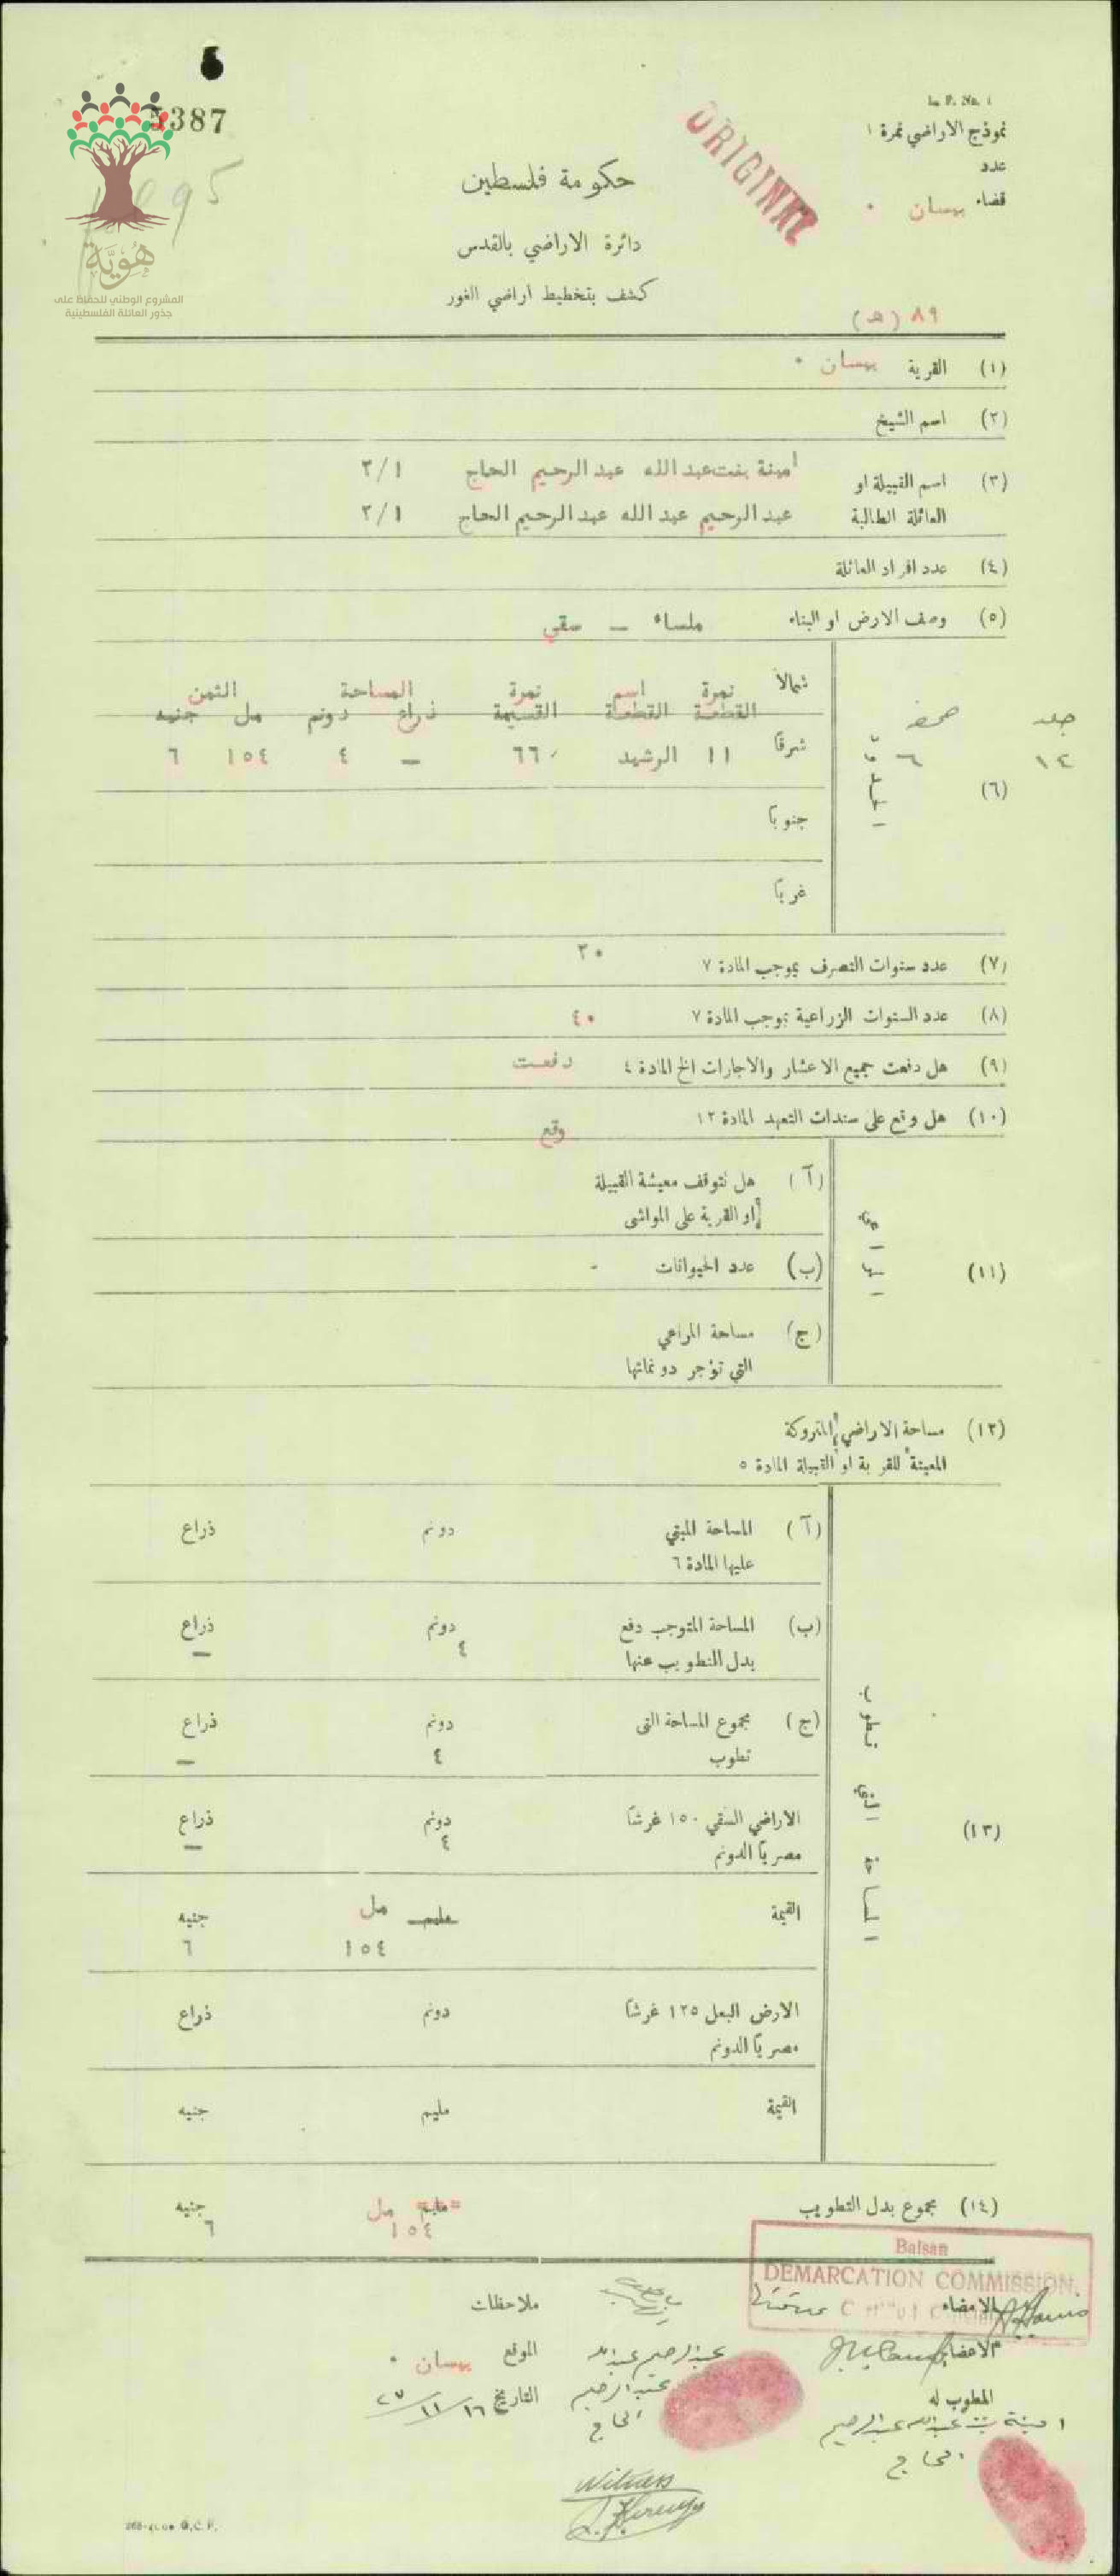 5387
L. P. No. 1
نموذج الاراضي نمرة ١
عدد
قضاء بيسان ٠
ORIGINAL
حكومة فلسطين
دائرة الاراضي بالقدس
كشف بتخطيط اراضي الغور
هُوِيَّة
المشروع الوطني للحفاظ على
جذور العائلة الفلسطينية
٨٩ (ه)
(١) القرية بيسان ٠
(٢) اسم الشيخ
(٣) اسم القبيلة او امينة بنت عبد الله عبد الرحيم الحاج ٢/١
العائلة الطالبة عبد الرحيم عبد الله عبد الرحيم الحاج ٢/١
(٤) عدد افراد العائلة
(٥) وصف الارض او البناء ملساء — سقي
شمالاً نمرة اسم نمرة المساحة الثمن
القطعة القطعة القسيمة ذراع دونم مل جنيه
جلد صحيفة
شرقاً ١١ الرشيد ٦٦ — ٤ ١٥٤ ٦
١٤ ٦
(٦)
جنوباً
غرباً
(٧) عدد سنوات التصرف بموجب المادة ٧ ٢٠
(٨) عدد السنوات الزراعية بموجب المادة ٧ ٤٠
(٩) هل دفعت جميع الاعشار والاجارات الخ المادة ٤ دفعت
(١٠) هل وقع على سندات التعهد المادة ١٢ وقع
(١١)
(آ) هل تتوقف معيشة القبيلة
او القرية على المواشي
(ب) عدد الحيوانات -
(ج) مساحة المراعي
التي تؤجر دونماتها
(١٢) مساحة الاراضي المتروكة
المعينة للقرية او القبيلة المادة ٥
(١٣)
(آ) المساحة المبقي دونم ذراع
عليها المادة ٦
(ب) المساحة المتوجب دفع دونم ذراع
بدل التطويب عنها ٤ —
(ج) مجموع المساحة التي دونم ذراع
تطوب ٤ —
الاراضي السقي ١٥٠ غرشاً دونم ذراع
مصرياً الدونم ٤ —
القيمة مليم مل جنيه
١٥٤ ٦
الارض البعل ١٢٥ غرشاً دونم ذراع
مصرياً الدونم
القيمة مليم جنيه
(١٤) مجموع بدل التطويب مليم مل جنيه
١٥٤ ٦
Baisan
DEMARCATION COMMISSION.
الامضاء
ملاحظات
الاعضاء
الموقع بيسان ٠
عبد الرحيم عبد الله
عبد الرحيم
الحاج
التاريخ ١٦/١١/٢٧
المطوب له
امينة بنت عبد الله عبد الرحيم
الحاج
Witness